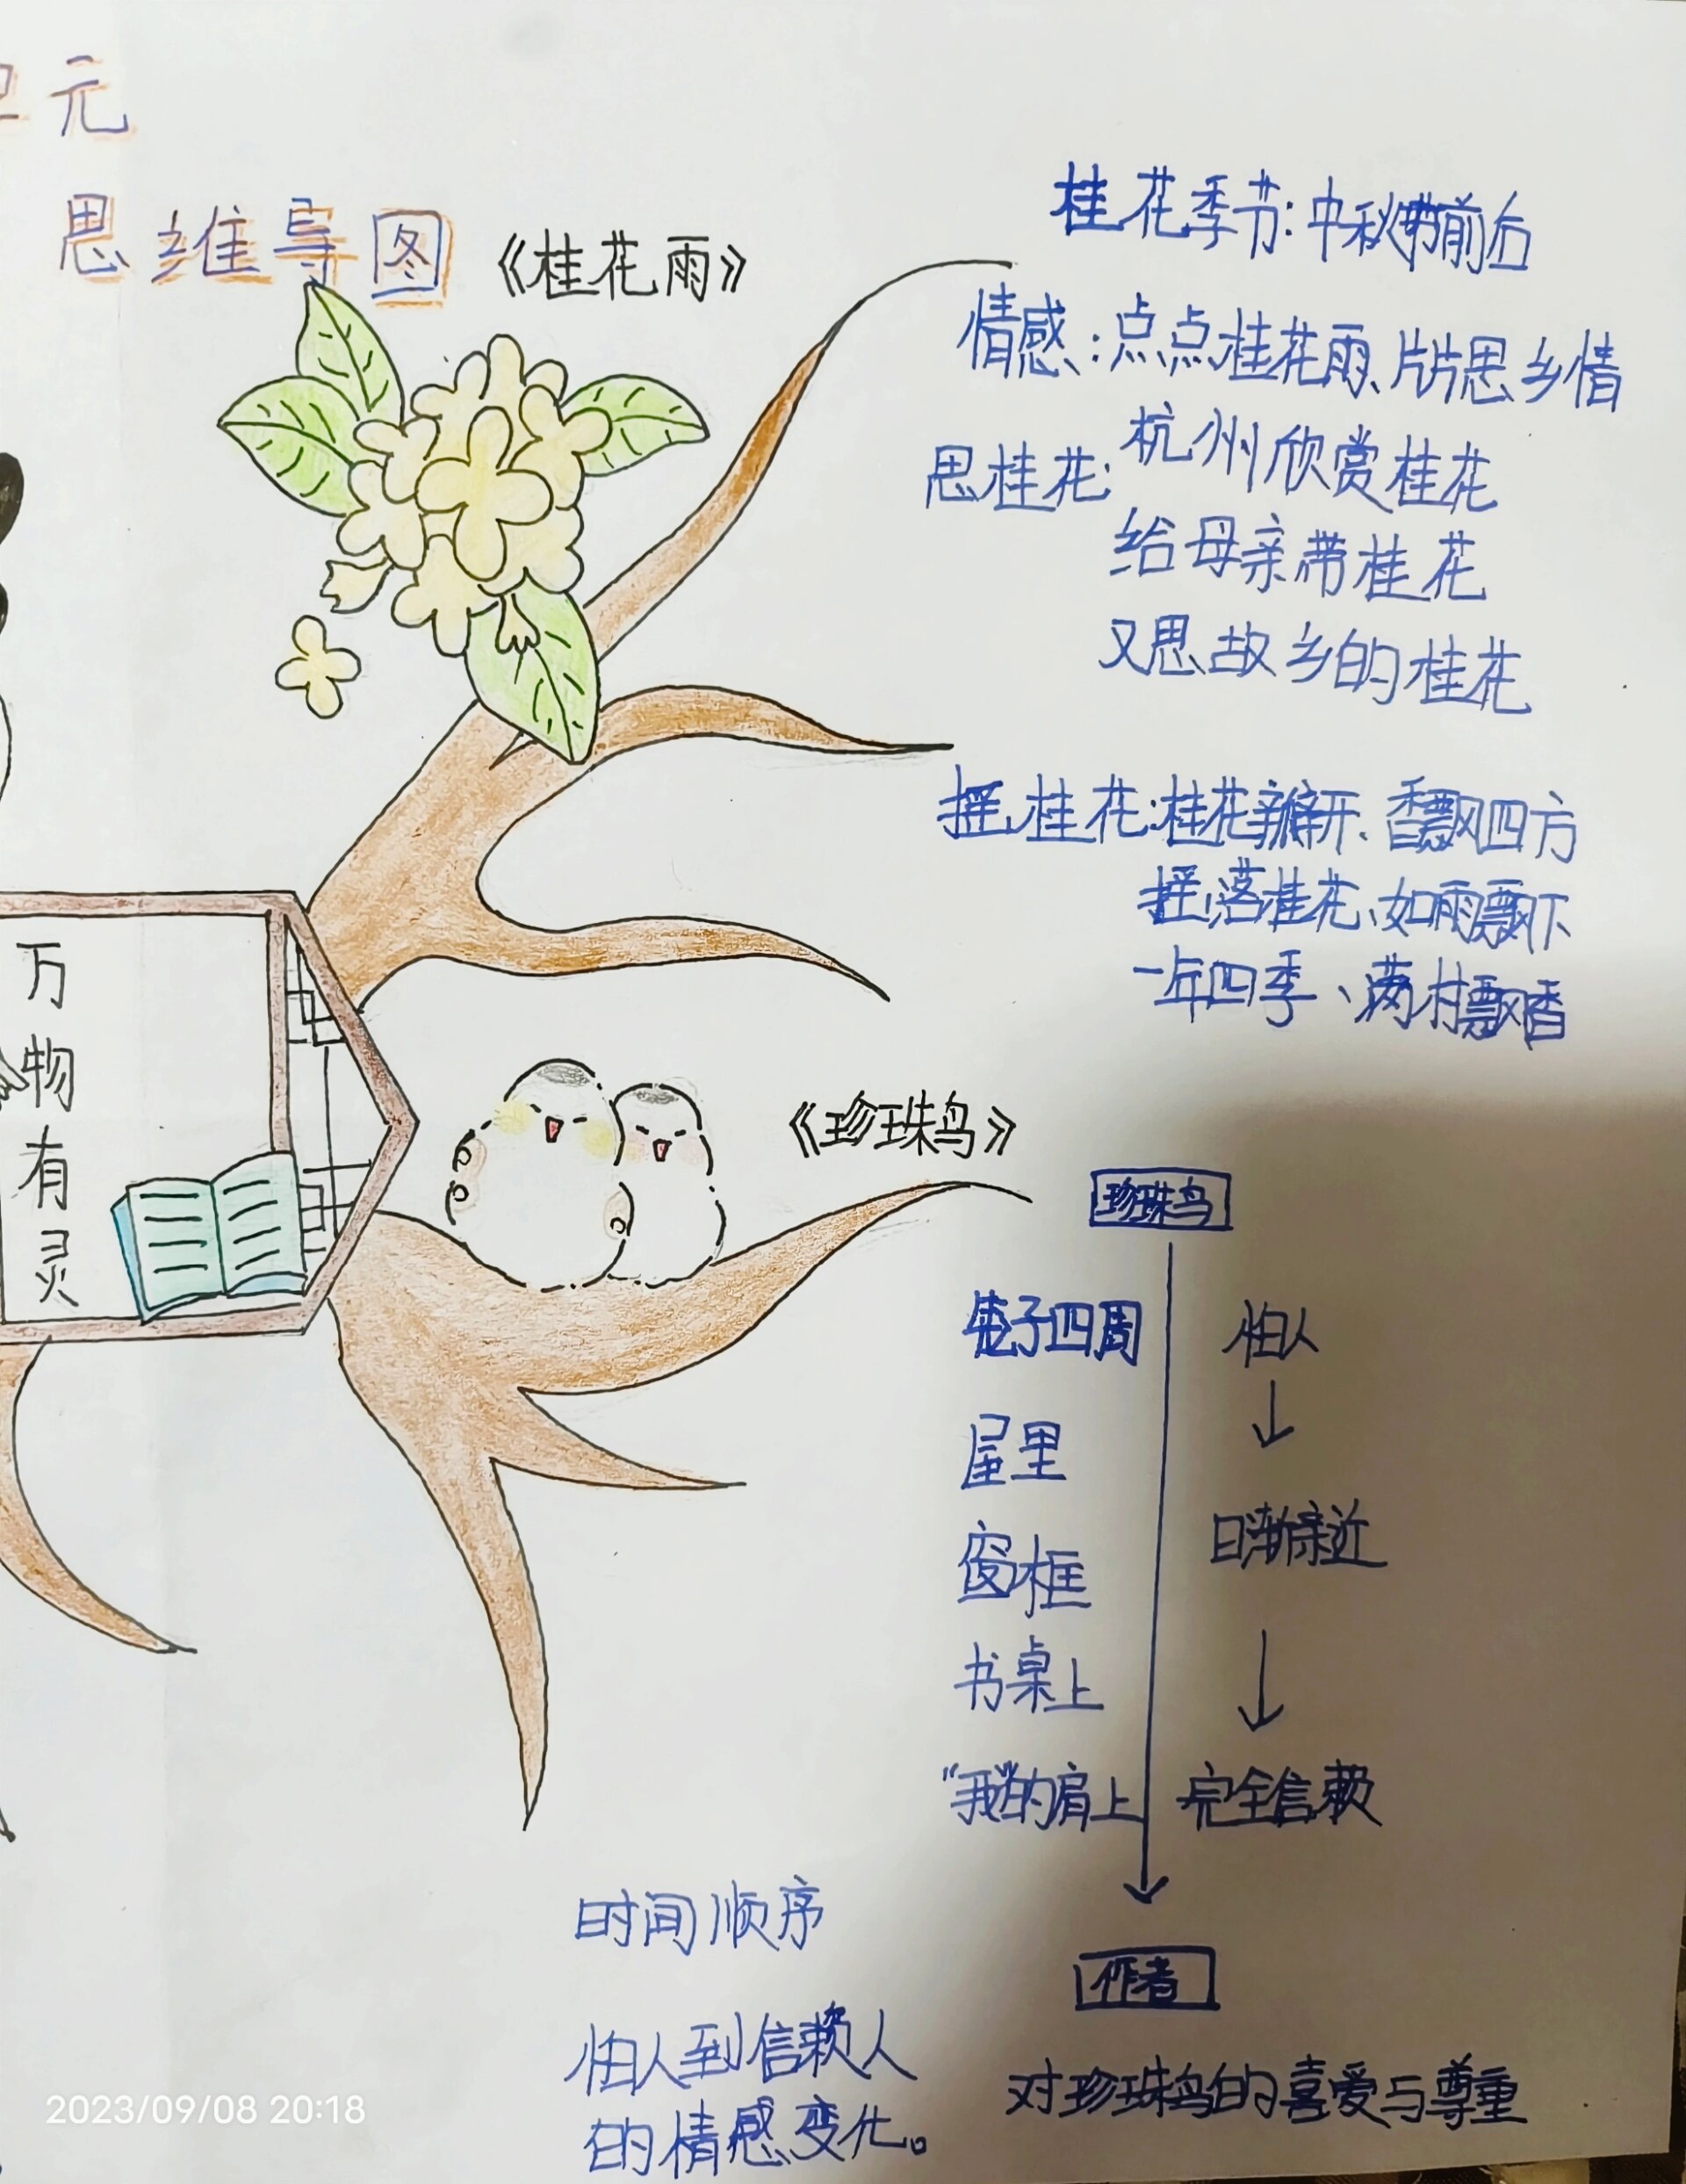 元
思维导图
《桂花雨》
桂花季节:中秋节前后
情感:点点桂花雨、片片思乡情
思桂花:杭州欣赏桂花
给母亲带桂花
又思故乡的桂花
摇桂花:桂花瓣开、香飘四方
摇落桂花、如雨飘下
一年四季、满村飘香
万物有灵
《珍珠鸟》
珍珠鸟
笼子四周
怕人
屋里
日渐亲近
窗框
书桌上
"我"的肩上
完全信赖
作者
对珍珠鸟的喜爱与尊重
时间顺序
怕人到信赖人
的情感变化。
2023/09/08 20:18